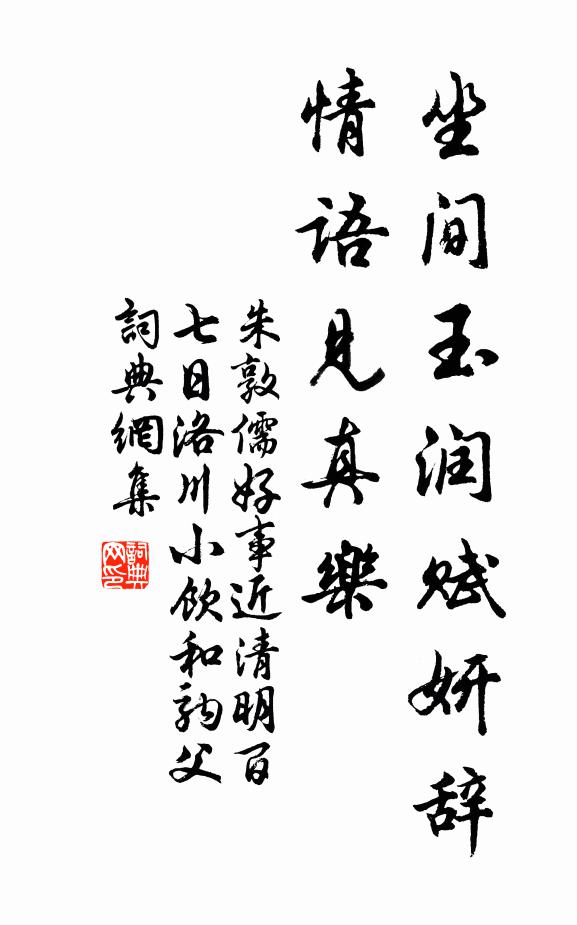 坐间玉润赋妍辞
情语见真樂
朱敦儒好事近清明百
七日洛川小飲和駒父
詞典網集
詞典
网印